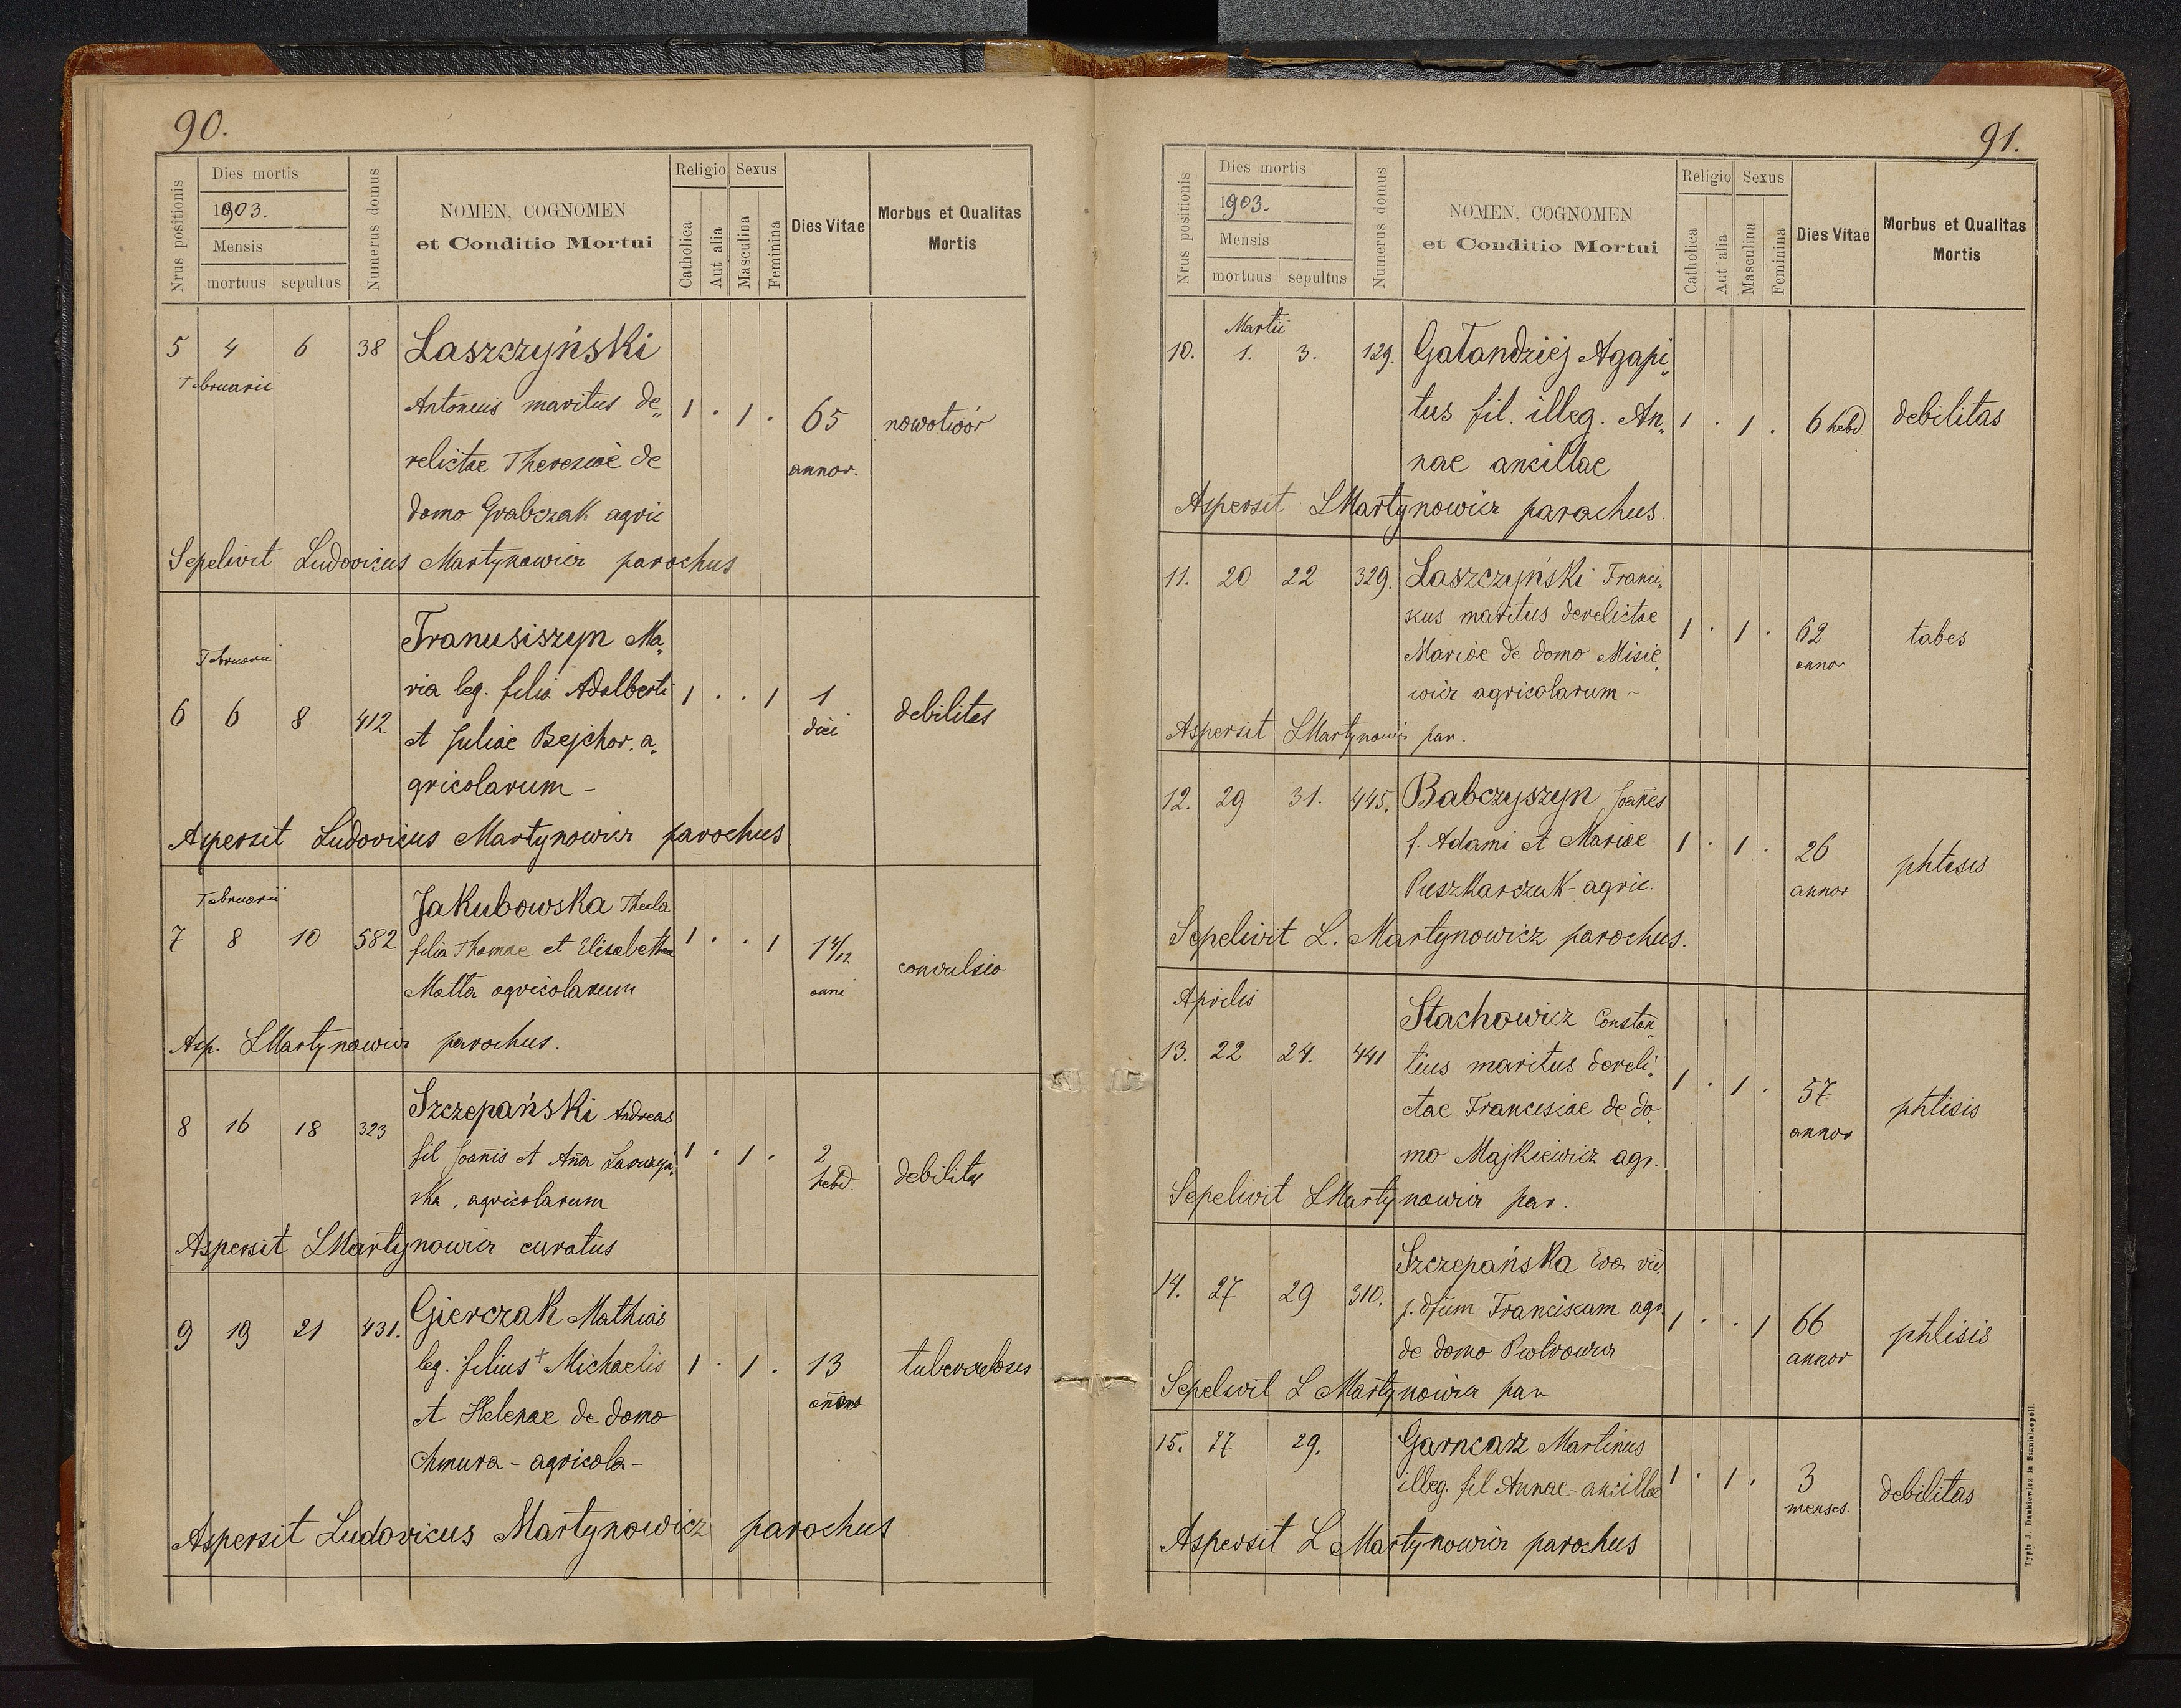 90.
Nrus positionis
Dies mortis
1903.
Mensis
mortuus sepultus
Numerus domus
NOMEN, COGNOMEN
et Conditio Mortui
Religio Sexus
Catholica
Aut alia
Masculina
Feminina
Dies Vitae
Morbus et Qualitas
Mortis
5 4 6 38 Laszczyński
Februarii
Antonius maritus de„ 1 . 1 . 65 nowotwór
relictae Thereziae de annor.
domo Grabczak agric
Sepelivit Ludovicus Martynowicz parochus
Franusiszyn Ma„
Februarii
ria leg. filia Adalberti 1 . . 1 1
6 6 8 412 debilitas
et Juliae Bejchor. a„ diei
gricolarum -
Aspersit Ludovicus Martynowicz parochus
Februarii
Jakubowska Thecla
7 8 10 582 filia Thomae et Elisabethae 1 . . 1 1 4/12 convulsio
Motta agricolarum anni
Asp. LMartynowicz parochus.
Szczepański Andreas
8 16 18 323
fil Joañis et Aña 1 . 1 . 2
ska, agricolarum hebd. debilitas
Aspersit LMartynowicz curatus
Gierczak Mathias
9 19 21 431.
leg. filius + Michaelis 1 . 1 . 13 tuberculosis
et Helenae de domo
Chmura - agricola -
Aspersit Ludovicus Martynowicz parochus
91.
Nrus positionis
Dies mortis
1903.
Mensis
mortuus sepultus
Numerus domus
NOMEN, COGNOMEN
et Conditio Mortui
Religio Sexus
Catholica
Aut alia
Masculina
Feminina
Dies Vitae
Morbus et Qualitas
Mortis
Martii
10. 1. 3. 129. Gałandziej Agapi„
tus fil. illeg. An„ 1 . 1 . 6 hebd. debilitas
nae ancillae
Aspersit LMartynowicz parochus.
11. 20 22 329. Laszczyński Franci„
scus maritus derelictae 1 . 1 . 62 tabes
Mariae de domo Misie„ annor
wicz agricolarum -
Aspersit LMartynowicz par.
12. 29 31. 445. Babczyszyn Joañes
f. Adami et Mariae 1 . 1 . 26 phtisis
Puszkarczuk - agric. annor
Sepelivit L. Martynowicz parochus.
Aprilis
Stachowicz Constan„
13. 22 24. 441 tius maritus dereli„ 1 . 1 . 57
ctae Franciscae de do„ annor phtisis
mo Majkiewicz agr.
Sepelivit LMartynowicz par.
Szczepańska Eva vid.
14. 27 29 310.
p. dfum Franciscum agr. 1 . . 1 66 phtisis
de domo Piotrowicz annor
Sepelivit L Martynowicz par
15. 27 29. Garncarz Martinus
illeg. fil Annae - ancillae 1 . 1 . 3 debilitas
menses.
Aspersit L Martynowicz parochus
Typis J. Dankiewicz in Stanislaopoli.